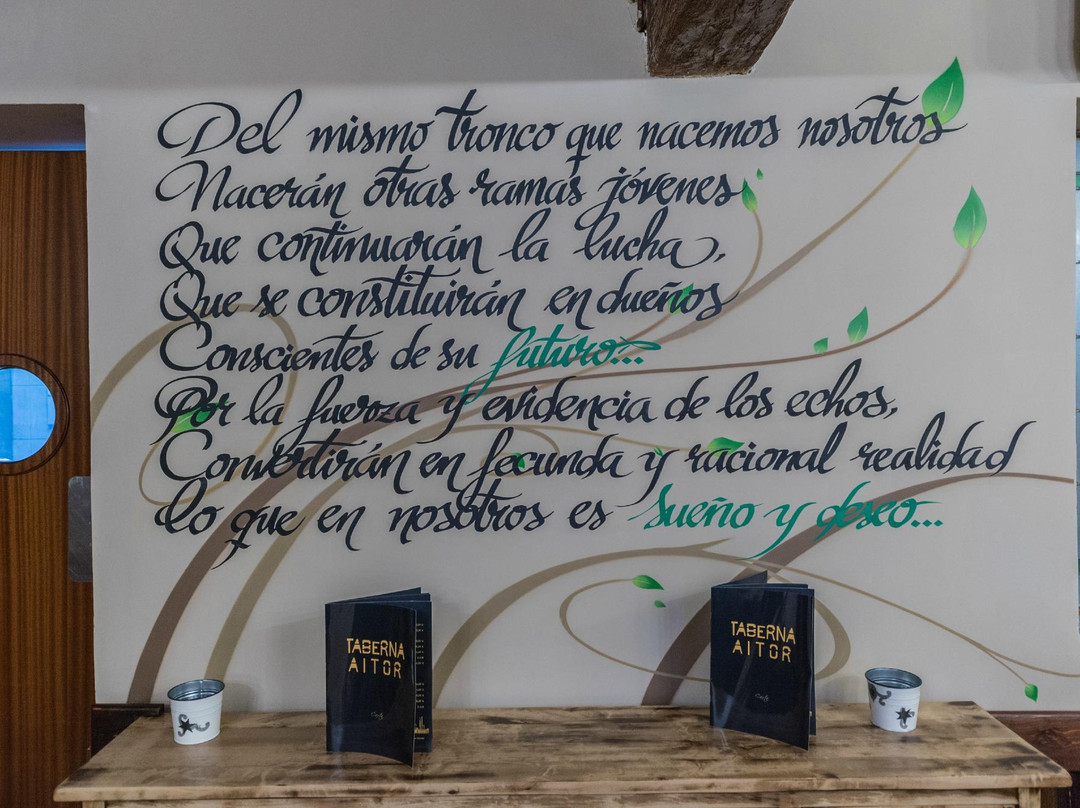 Del mismo tronco que nacemos nosotros
Nacerán otras ramas jóvenes
Que continuarán la lucha,
Que se constituirán en dueños
Conscientes de su futuro...
Por la fuerza y evidencia de los echos,
Convertirán en fecunda y racional realidad
lo que en nosotros es sueño y deseo...
TABERNA
AITOR
TABERNA
AITOR